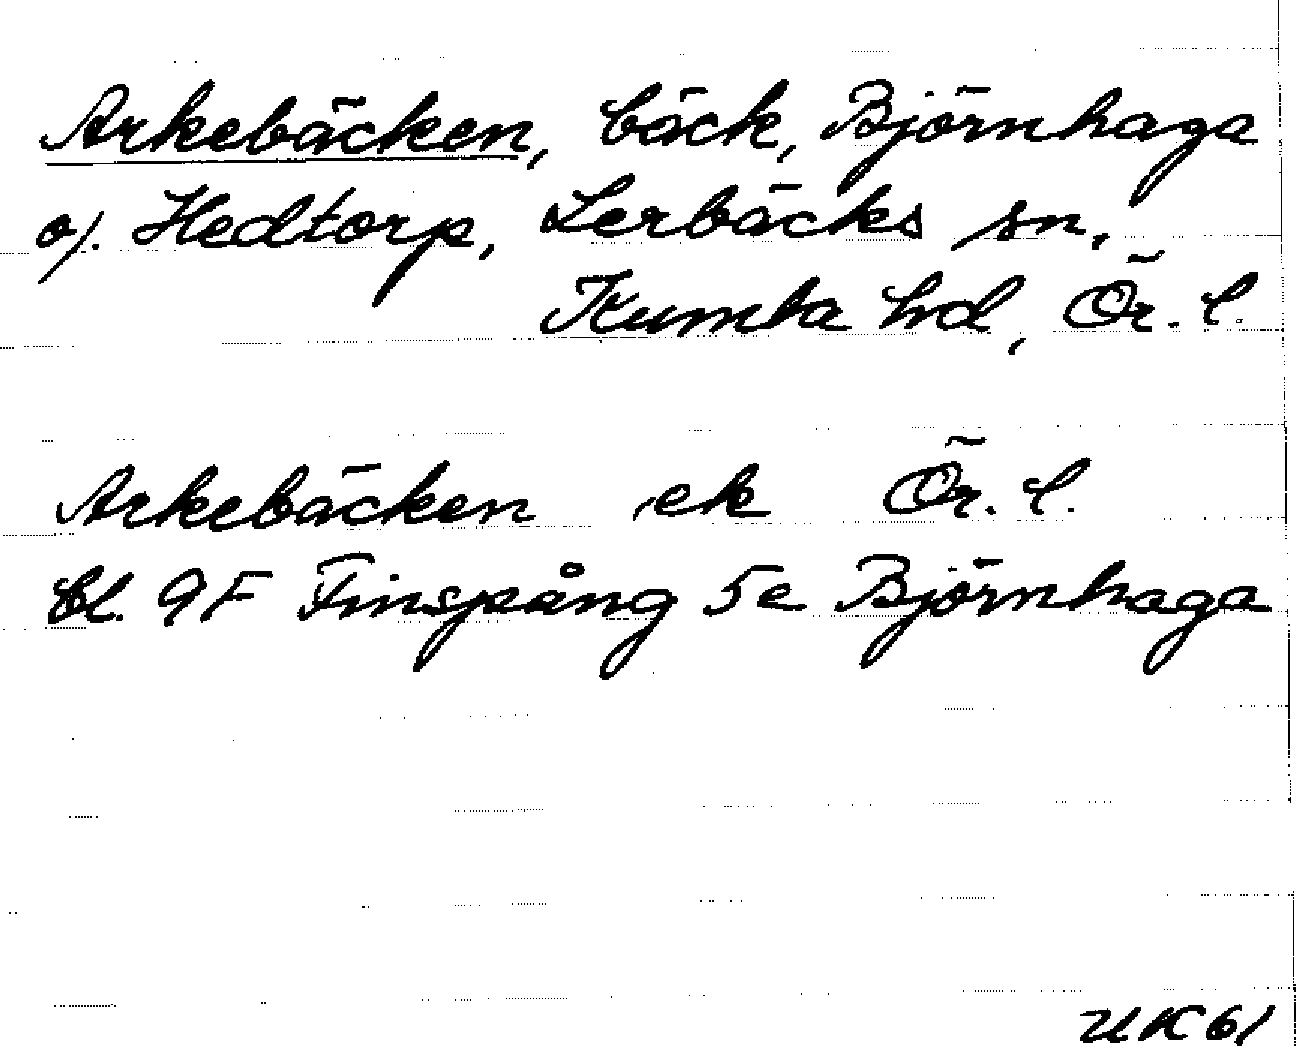 Arkebäcken, bäck, Björnhaga
o/. Hedtorp, Lerbäcks sn.
Kumla hd, Ör. l.
Arkebäcken ek Ör. l.
bl. 9F Finspång 5e Björnhaga
UK61